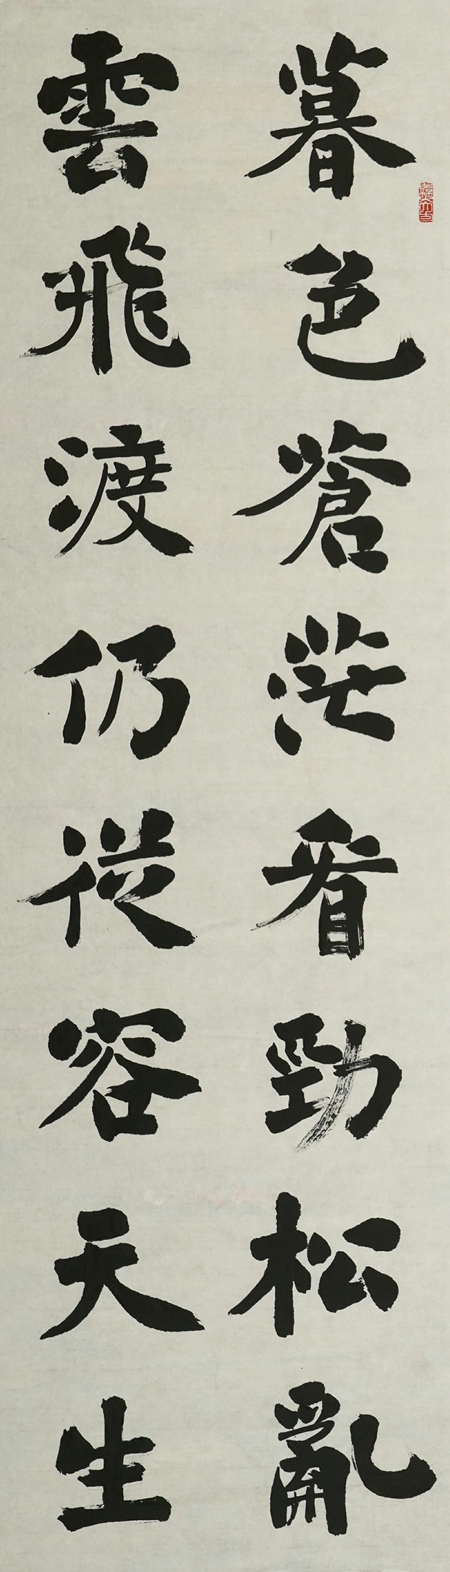 暮色蒼茫看勁松亂
雲飛渡仍從容天生